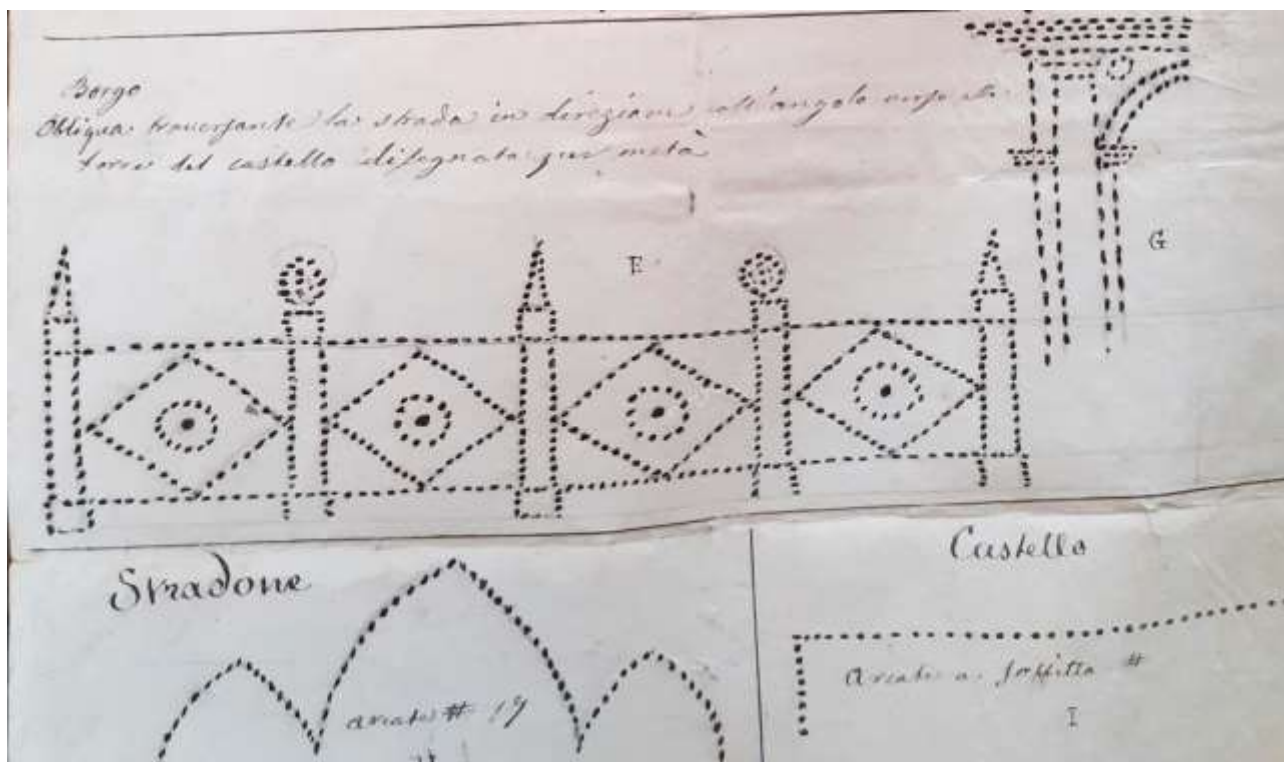 Borgo
Obliqua traversante la strada in direzione all'angolo
torre del castello disegnata per metà
E
G
Stradone
Arcate # 19
Castello
Arcate a soffitta #
I